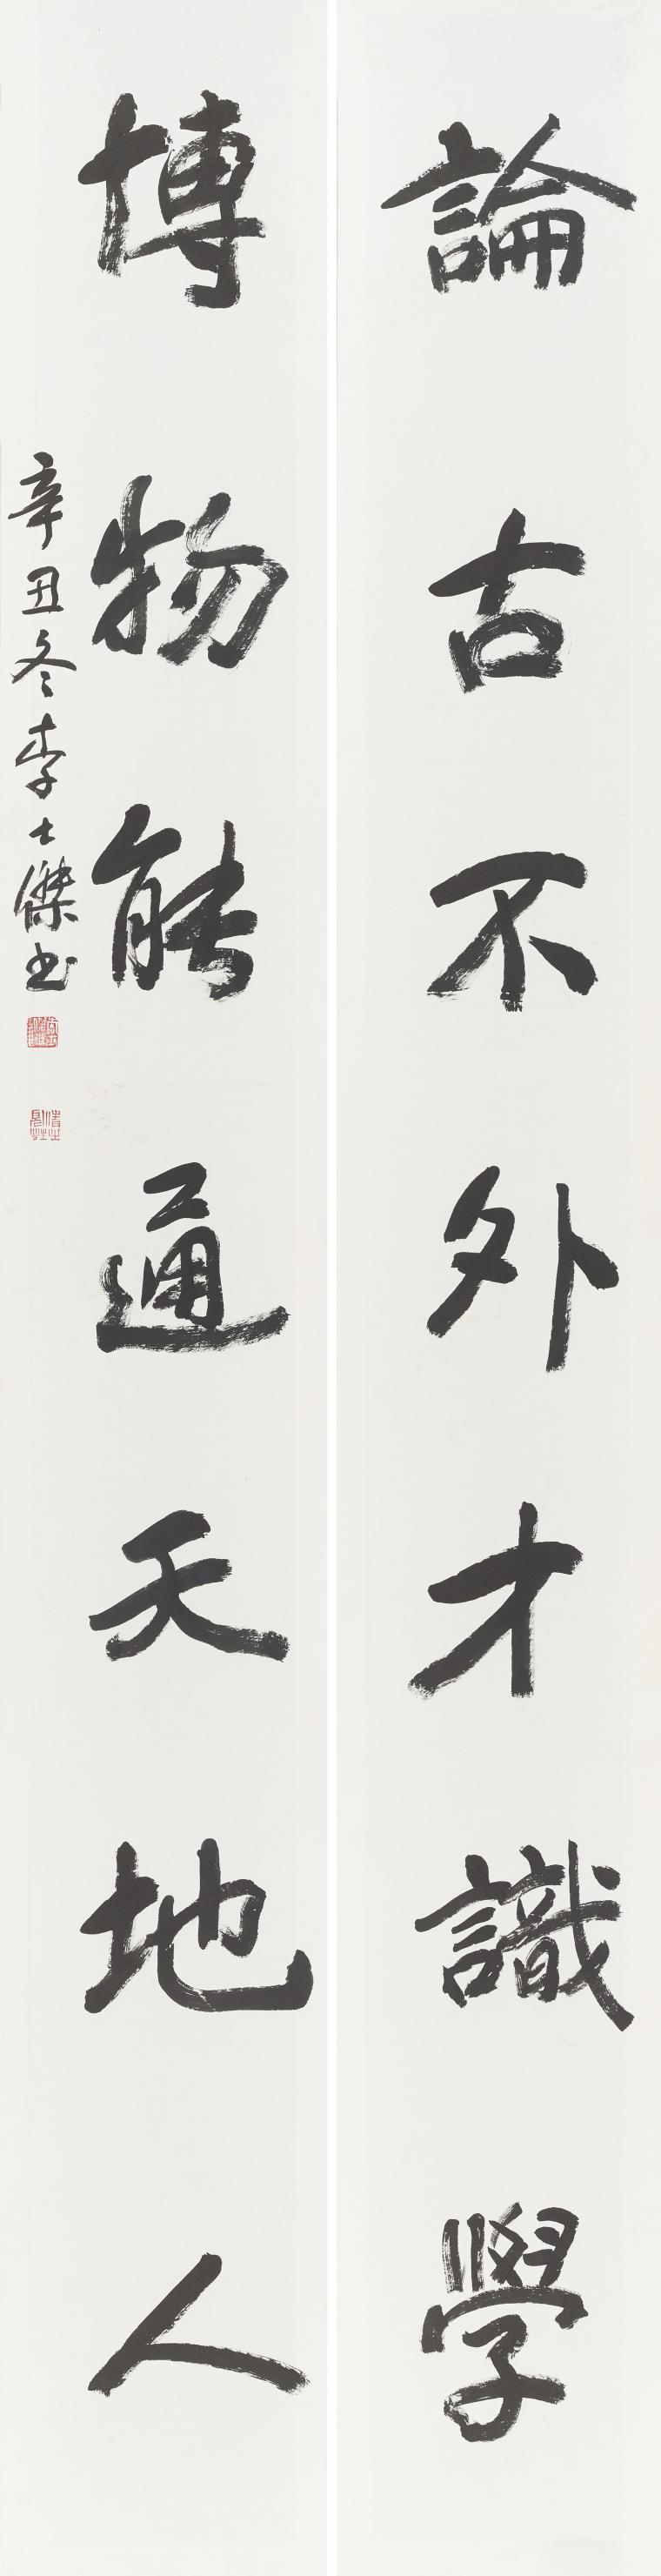 論古不外才識學
博物能通天地人
辛丑冬李士傑书